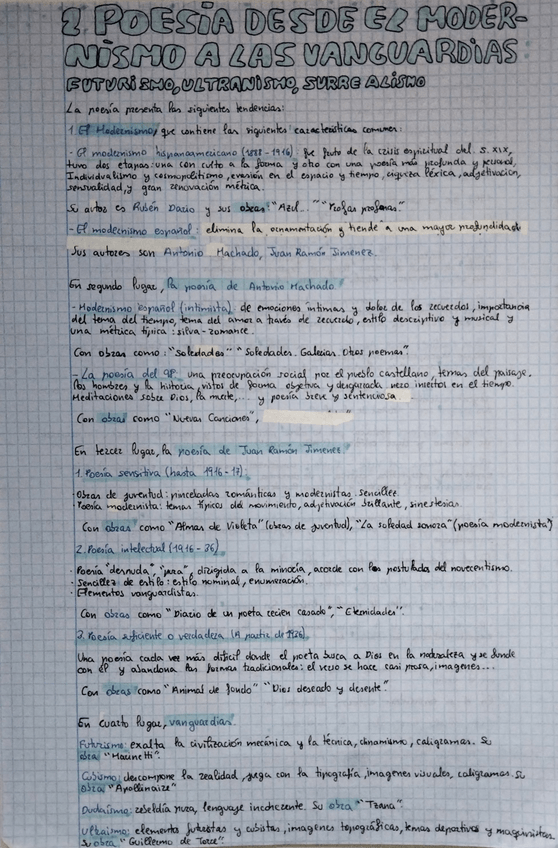 2 POESÍA DESDE EL MODER-
NISMO A LAS VANGUARDIAS
FUTURISMO, ULTRANISMO, SURREALISMO
La poesía presenta las siguientes tendencias:
1. El Modernismo, que contiene las siguientes características comunes:
- El modernismo hispanoamericano (1888-1916) fue fruto de la crisis espiritual del s. XIX,
tuvo dos etapas: una con culto a la forma y otro con una poesía más profunda y personal,
Individualismo y cosmopolitismo, evasión en el espacio y tiempo, riqueza léxica, adjetivación,
sensualidad, y gran renovación métrica.
Su autor es Rubén Darío y sus obras "Azul..." "Prosas profanas".
- El modernismo español: elimina la ornamentación y tiende a una mayor profundidad
Sus autores son Antonio Machado, Juan Ramón Jimenez.
En segundo lugar, la poesía de Antonio Machado
- Modernismo español (intimista): de emociones íntimas y dolor de los recuerdos, importancia
del tema del tiempo, tema del amor a través de recuerdo, estilo descriptivo y musical y
una métrica típica: silva-romance.
Con obras como: "Soledades" "Soledades. Galerias. Otros poemas".
- La poesía del 98: una preocupación social por el pueblo castellano, temas del paisaje,
los hombres y la historia, vistos de forma objetiva y desgarrada pero insertos en el tiempo.
Meditaciones sobre Dios, la muerte,... y poesía breve y sentenciosa
Con obras como "Nuevas Canciones",
En tercer lugar, la poesía de Juan Ramón Jimenez.
1. Poesía sensitiva (hasta 1916-17):
· Obras de juventud: pinceladas románticas y modernistas. sencillez.
· Poesía modernista: temas típicos del movimiento, adjetivación brillante, sinestesias.
Con obras como "Almas de Violeta" (obras de juventud), "La soledad sonora" (poesía modernista)
2. Poesía intelectual (1916-36).
· Poesía "desnuda", "pura", dirigida a la minoría, acorde con los postulados del novecentismo.
· Sencillez de estilo: estilo nominal, enumeración.
· Elementos vanguardistas.
Con obras como "Diario de un poeta recien casado", "Eternidades".
3. Poesía suficiente o verdadera (A partir de 1936).
Una poesía cada vez más dificil donde el poeta busca a Dios en la naturaleza y se funde
con él y abandona las formas tradicionales: el verso se hace casi prosa, imagenes...
Con obras como "Animal de fondo" "Dios deseado y deseante".
En cuarto lugar, vanguardias.
Futurismo: exalta la civilización mecánica y la técnica, dinamismo, caligramas. Su
obra "Marinetti".
Cubismo: descompone la realidad, juega con la tipografía, imagenes visuales, caligramas. Su
obra "Apollinaire"
Dadaísmo: rebeldía pura, lenguaje incoherente. Su obra "Tzara".
Ultraísmo: elementos futuristas y cubistas, imagenes topográficas, temas deportivos y maquinistas.
Su obra "Guillermo de Torre".